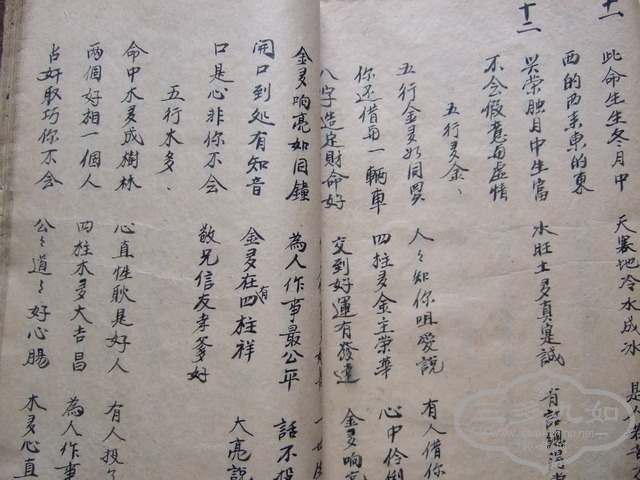 十一
此命生生冬月中 天寒地冷水成冰
西的西来東的東
十二
不会假意甪虚情 水旺土多真寔誠
五行多金、
五行金多 人々知你咀愛說
你还借甪一輛車 四柱多金主荣華
八字造定財命好 交到好運有發達
金多响亮如同鐘 為人作事最公平
開口到处有知音 金多在四柱有祥
口是心非你不会 敬兄信友孝爹好
五行木多、
命中木多成樹林 心直性耿是好人
两個好相一個人 四柱木多大吉昌
占奸取巧你不会 公々道々好心腸
有話
有人借你
心中伶俐
金多响亮
話不投
大亮說
有人投
為人作事
木多心直
三多九如